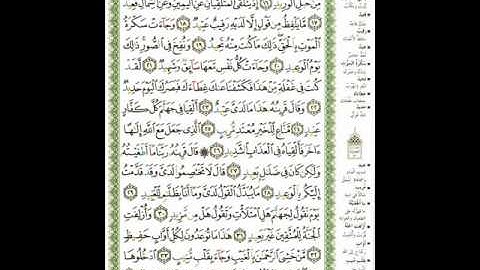 مِنْ حَبْلِ ٱلْوَرِيدِ ١٦ إِذْ يَتَلَقَّى ٱلْمُتَلَقِّيَانِ عَنِ ٱلْيَمِينِ وَعَنِ ٱلشِّمَالِ قَعِيدٌ
١٧ مَّا يَلْفِظُ مِن قَوْلٍ إِلَّا لَدَيْهِ رَقِيبٌ عَتِيدٌ ١٨ وَجَآءَتْ سَكْرَةُ
ٱلْمَوْتِ بِٱلْحَقِّ ذَٰلِكَ مَا كُنتَ مِنْهُ تَحِيدُ ١٩ وَنُفِخَ فِى ٱلصُّورِ ذَٰلِكَ
يَوْمُ ٱلْوَعِيدِ ٢٠ وَجَآءَتْ كُلُّ نَفْسٍ مَّعَهَا سَآئِقٌ وَشَهِيدٌ ٢١ لَّقَدْ
كُنتَ فِى غَفْلَةٍ مِّنْ هَٰذَا فَكَشَفْنَا عَنكَ غِطَآءَكَ فَبَصَرُكَ ٱلْيَوْمَ حَدِيدٌ
٢٢ وَقَالَ قَرِينُهُۥ هَٰذَا مَا لَدَىَّ عَتِيدٌ ٢٣ أَلْقِيَا فِى جَهَنَّمَ كُلَّ كَفَّارٍ
عَنِيدٍ ٢٤ مَّنَّاعٍ لِّلْخَيْرِ مُعْتَدٍ مُّرِيبٍ ٢٥ ٱلَّذِى جَعَلَ مَعَ ٱللَّهِ إِلَٰهًا
ءَاخَرَ فَأَلْقِيَاهُ فِى ٱلْعَذَابِ ٱلشَّدِيدِ ٢٦ ۞ قَالَ قَرِينُهُۥ رَبَّنَا مَآ أَطْغَيْتُهُۥ
وَلَٰكِن كَانَ فِى ضَلَٰلٍۭ بَعِيدٍ ٢٧ قَالَ لَا تَخْتَصِمُوا۟ لَدَىَّ وَقَدْ قَدَّمْتُ
إِلَيْكُم بِٱلْوَعِيدِ ٢٨ مَا يُبَدَّلُ ٱلْقَوْلُ لَدَىَّ وَمَآ أَنَا۠ بِظَلَّٰمٍ لِّلْعَبِيدِ ٢٩
يَوْمَ نَقُولُ لِجَهَنَّمَ هَلِ ٱمْتَلَأْتِ وَتَقُولُ هَلْ مِن مَّزِيدٍ ٣٠ وَأُزْلِفَتِ
ٱلْجَنَّةُ لِلْمُتَّقِينَ غَيْرَ بَعِيدٍ ٣١ هَٰذَا مَا تُوعَدُونَ لِكُلِّ أَوَّابٍ حَفِيظٍ
٣٢ مَّنْ خَشِىَ ٱلرَّحْمَٰنَ بِٱلْغَيْبِ وَجَآءَ بِقَلْبٍ مُّنِيبٍ ٣٣ ٱدْخُلُوهَا